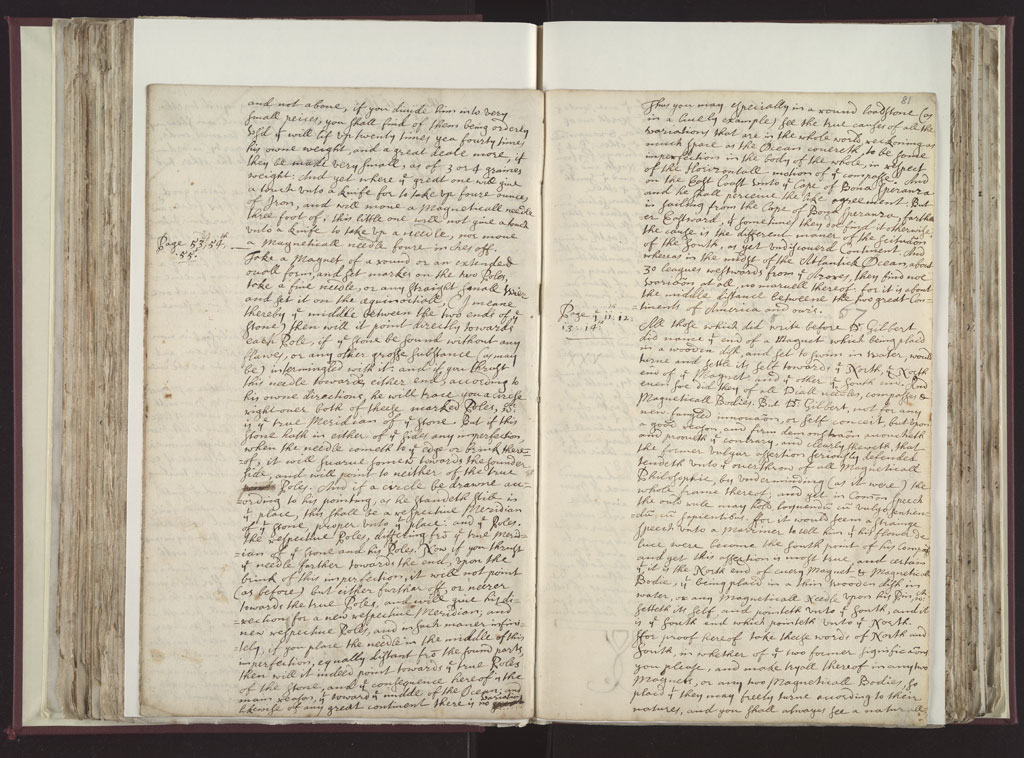 and not aboue, if you diuide him into very
small peeces, you shall find of them being orderly
us'd yt will lift vp twenty times yea fourty times
his owne weight, and a great deale more, if
they be made very small, as of 3 or 4 graines
weight. And yet where ye great one will giue
a touch vnto a knife for to take vp foure ounces
of Iron, and will moue a Magneticall needle
three foot of, this little one will not giue a touch
vnto a knife to take vp a needle, nor moue
a Magneticall needle foure inches off.
Page 53. 54th
55.
Take a Magnet of a round or an extended
ouall form, and set markes on the two Poles,
take a fine needle, or any straight small wier
and set it on the equinoctiall, (I meane
thereby ye middle between the two ends of ye
stone) then will it point directly towards
each Pole, if ye stone be found without any
flawes, or any other grosse substance (as may
be) intermingled with it: and if you thrust
this needle towards either end, according to
his owne directions, he will trace you a circle
right ouer both of these marked Poles,
is ye true Meridian of ye stone. But if this
stone hath in either of ye sides any imperfection,
when the needle cometh to ye edge or brink there=
=of, it will swarue somewt towards the sounder
side, and will point to neither of the true
Poles. And if a circle be drawne acc=
=ording to his pointing, as he standeth still in
ye place, this shall be a respectiue Meridian
of ye stone, proper vnto ye place: and ye Poles.
the respectiue Poles, differing frõ ye true Merid=
=ian of ye stone and his Poles. Now if you thrust
ye needle farther towards the end, vpon the
brink of this imperfection, it will not point
(as before) but either further off, or nearer
towards the true Poles, and will giue his di=
=rection for a new respectiue Meridian, and
new respectiue Poles, and in such maner infini=
=tely, if you place the needle in the middle of this
imperfection, equally distant frõ the sound parts
then will it indeed point towards ye true Poles
of the stone, and ye consequence hereof is the
main reason, yt toward ye middle of the Ocean, and
likewise of any great continent there is no variation
81
Thus you may especially in a round loadstone (as
in a liuely example) see the true causes of all the
variations that are in the whole world reckoning as
much space as the Ocean couereth, to be some
imperfections in the body of the whole, in respect
of the Horizontall motion of ye compasse. And
on the East Coast vnto ye Cape of Bona Speranza
and he shall perceiue the like agreement. But
in sailing from the Cape of Bona Speranza, farth=
er Eastward, if sometimes they do find it otherwise,
the cause is the different maner of the scituation
of the South, as yet vndiscouerd Continent. And
whereas in the midst of the Atlantick Ocean, about
30 leagues westwards from ye Azores, they find no
variation at all, no maruell thereof: for it is about
the middle distance betweene the two great Con=
=tinents of America and ours. 57
Page ye 11th: 12:
13: 14:
All those which did write before Dr Gilbert
did name yt end of a Magnet which being placd
in a wooden dish, and set to swim in water, would
turne and settle it self towards ye North, ye North
end of ye Magnet: and ye other ye South end. And
euen so did they of all Diall needles, compasses &
Magneticall Bodies. But Dr Gilbert, not for any
new fangled innouation, or self conceit, but vpon
a good reason and firm demonstration auoucheth
and proueth ye contrary, and clearly sheweth, that
the former vulgar assertion seriously defended
tendeth vnto ye ouerthrow of all Magneticall
Philosophie, by vndermining (as it were) the
whole frame thereof, and yet in Comõn speech
the old rule may hold, loquendũ cũ vulgo, sentien=
=dũ cũ sapientibus. ffor it would seem a strange
speech vnto a Marriner to tell him yt his flower de
luce were become the South point of his compasse
and yet this assertion is most true, and certain
yt it is the North end of euery Magnet & Magneticall
Bodie, yt being placd in a thin wooden dish in
water, or any Magneticall Needle vpon his Pin,
setteth it self and pointeth vnto ye South, and it
is ye South end which pointeth vnto ye North.
ffor proof hereof take these words of North and
South, in whether of ye two former significations
you please, and make tryall thereof in any two
Magnets, or any two Magneticall Bodies, so
placd yt they may freely turne according to their
natures, and you shall alwayes see a naturall